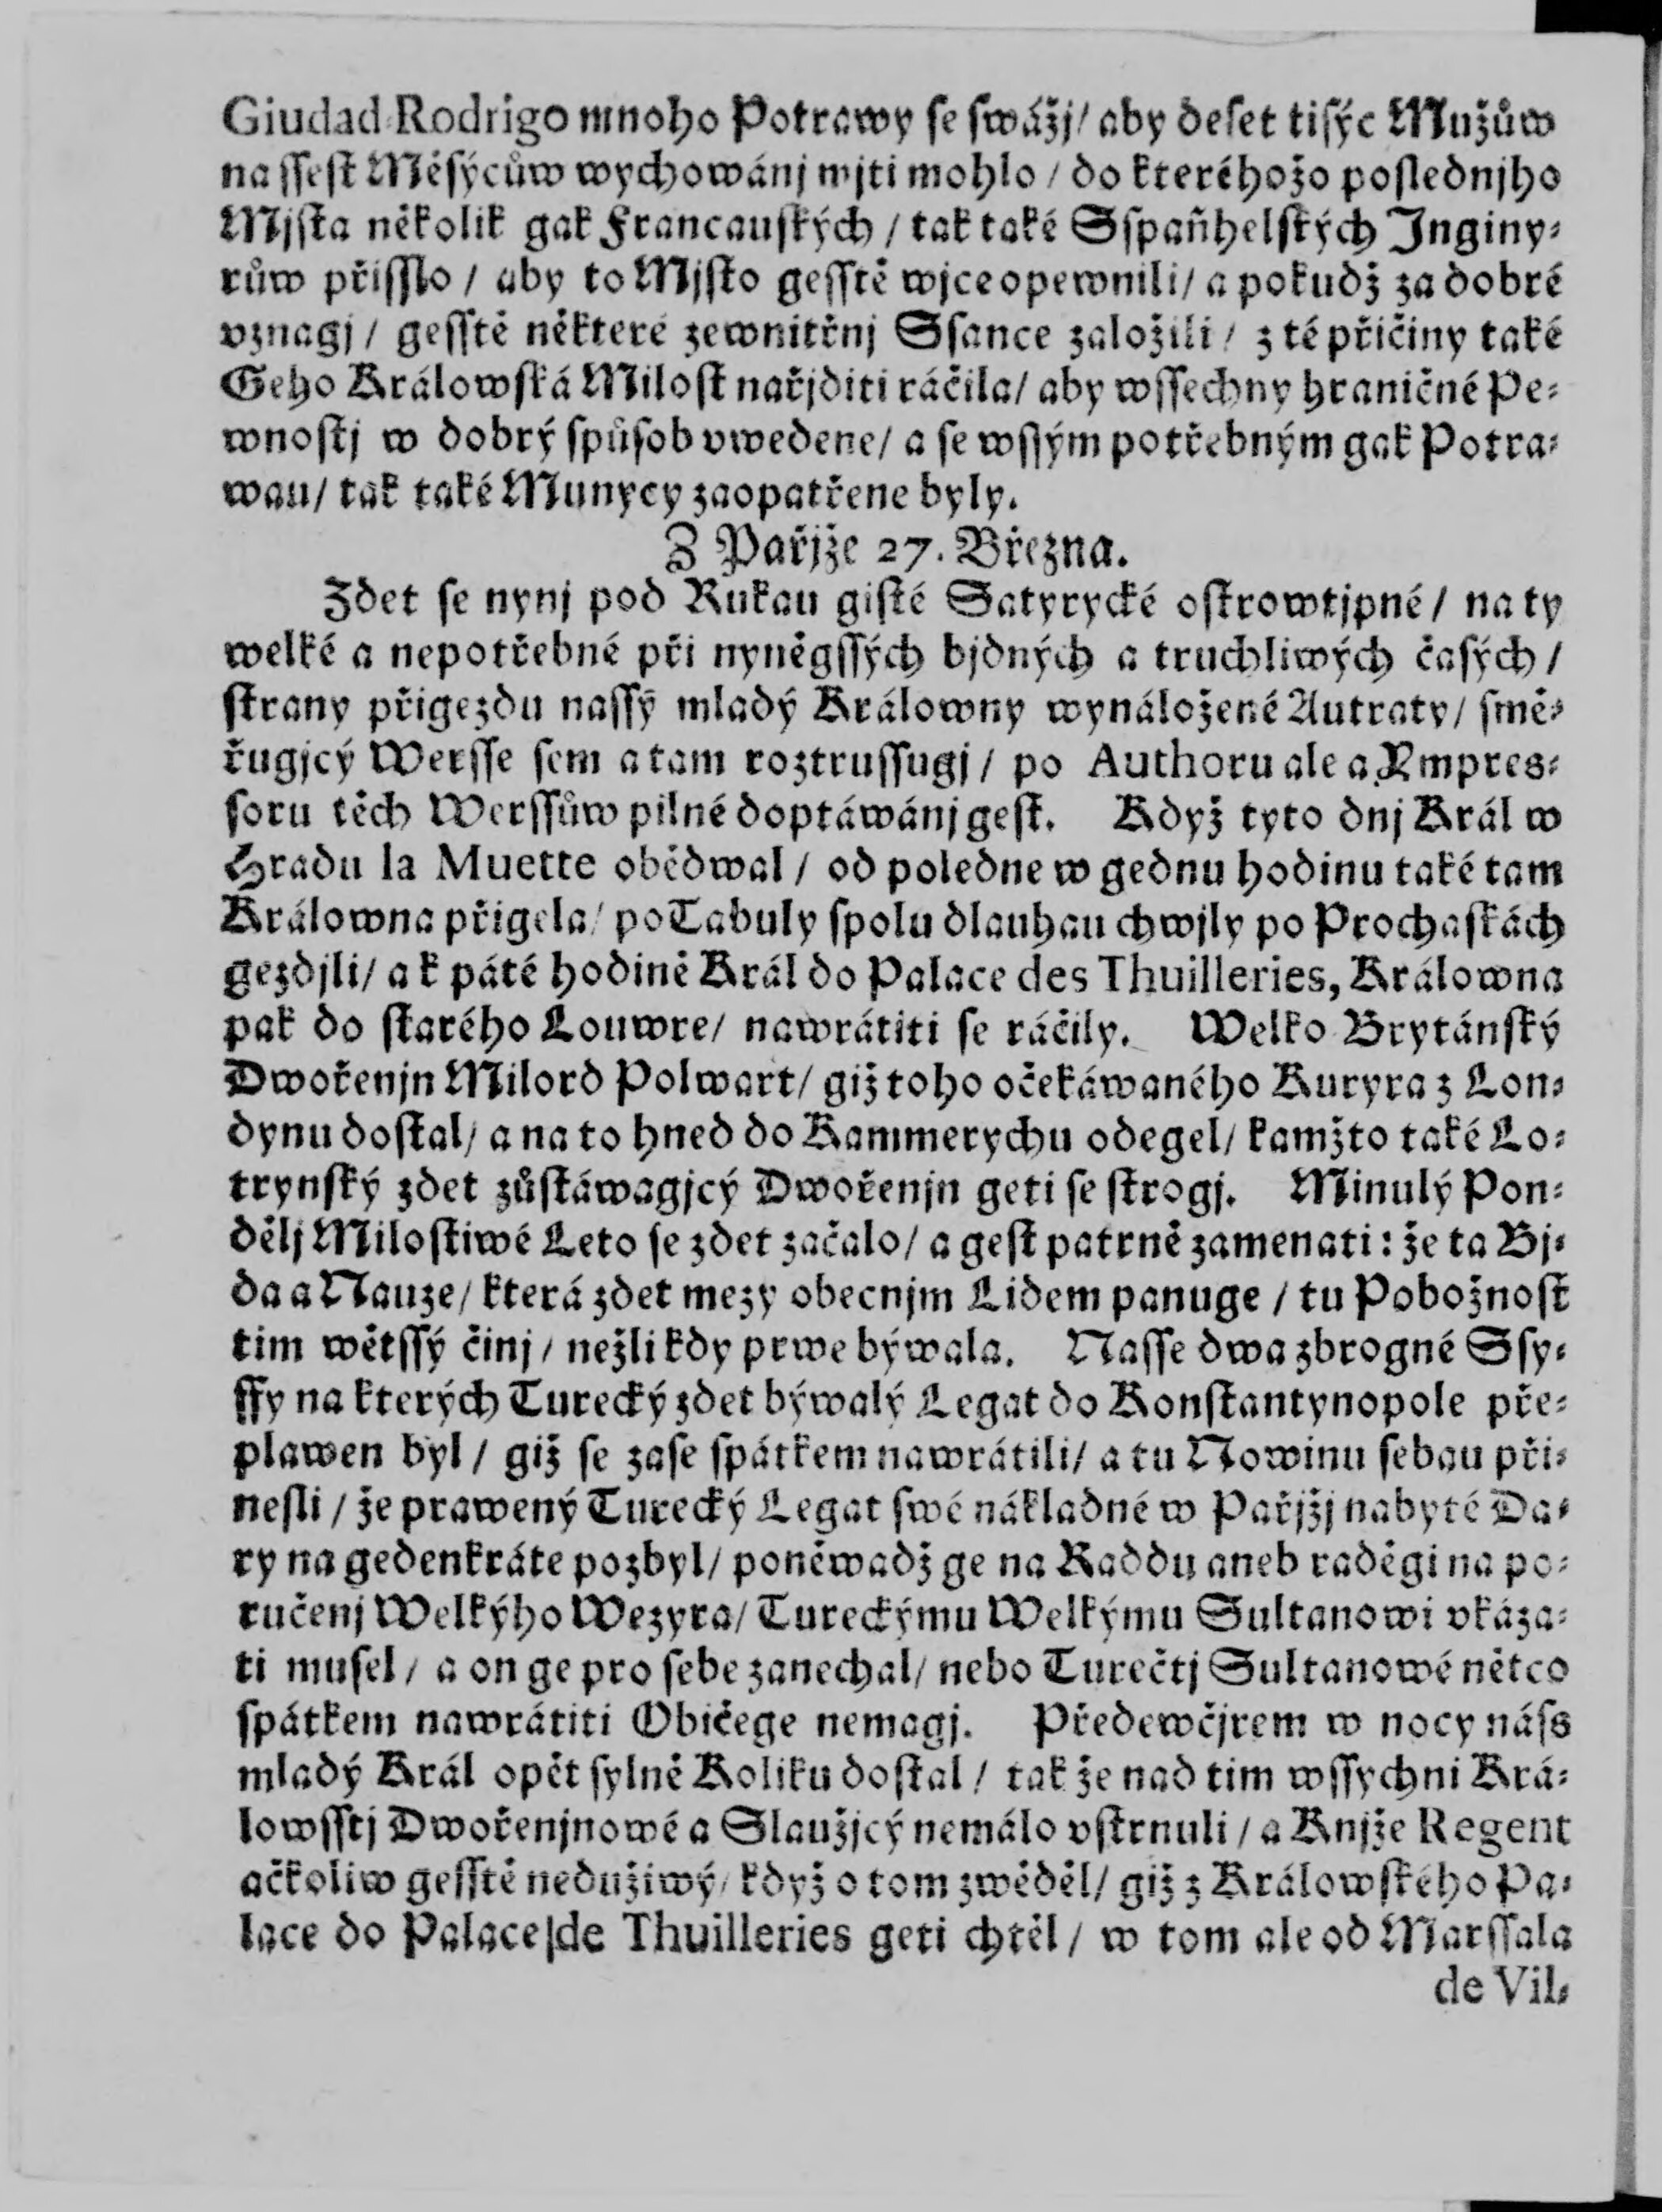 Giudad Rodrigo mnoho Potrawy se swážj / aby deset tisýc Mužůw
na ssest Měsýcůw wychowánj mjti mohlo / do kteréhožo poslednjho
Mjsta několik gak Francauských / tak také Sspaňhelských Inginy-
růw přisslo / aby to Mjsto gesstě wjce opewnili / a pokudž za dobré
vznagj / gesstě některé zewnitřnj Ssance založili / z té přičiny také
Geho Králowská Milost nařjditi ráčila / aby wssechny hraničné Pe-
wnostj w dobrý spůsob vwedene / a se wssým potřebným gak Potra-
wau / tak také Munycy zaopatřene byly.
Z Pařjže 27. Března.
Zdet se nynj pod Rukau gisté Satyrycké ostrowtjpné / na ty
welké a nepotřebné při nyněgssých bjdných a truchliwých časých /
strany přigezdu nassý mladý Králowny wynáložené Autraty / smě-
řugjcý Wersse sem a tam roztrussugj / po Authoru ale a Ympres-
soru těch Werssůw pilné doptáwánj gest. Když tyto dnj Král w
Hradu la Muette obědwal / od poledne w gednu hodinu také tam
Králowna přigela / po Tabuly spolu dlauhau chwjly po Prochaskách
gezdjli / a k páté hodině Král do Palace des Thuilleries, Králowna
pak do starého Louwre / nawrátiti se ráčily. Welko Brytánský
Dwořenjn Milord Polwart / giž toho očekáwaného Kuryra z Lon-
dynu dostal / a na to hned do Kammerychu odegel / kamžto také Lo-
trynský zdet zůstáwagjcý Dwořenjn geti se strogj. Minulý Pon-
dělj Milostiwé Leto se zdet začalo / a gest patrně zamenati: že ta Bj-
da a Nauze / která zdet mezy obecnjm Lidem panuge / tu Pobožnost
tim wětssý činj / nežli kdy prwe býwala. Nasse dwa zbrogné Ssy-
ffy na kterých Turecký zdet býwalý Legat do Konstantynopole pře-
plawen byl / giž se zase spátkem nawrátili / a tu Nowinu sebau při-
nesli / že prawený Turecký Legat swé nákladné w Pařjžj nabyté Da-
ry na gedenkráte pozbyl / poněwadž ge na Raddu aneb raděgi na po-
ručenj Welkýho Wezyra / Tureckýmu Welkýmu Sultanowi vkáza-
ti musel / a on ge pro sebe zanechal / nebo Turečtj Sultanowé nětco
spátkem nawrátiti Običege nemagj. Předewčjrem w nocy náss
mladý Král opět sylně Koliku dostal / tak že nad tim wssychni Krá-
lowsstj Dwořenjnowé a Slaužjcý nemálo vstrnuli / a Knjže Regent
ačkoliw gesstě nedužiwý / když o tom zwěděl / giž z Králowského Pa-
lace do Palace de Thuilleries geti chtěl / w tom ale od Marssala
de Vil-